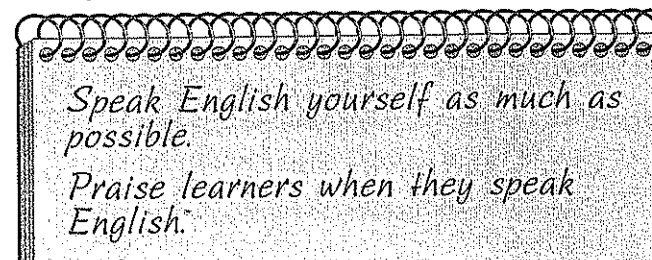 Speak English yourself as much as
possible.
Praise learners when they speak
English.